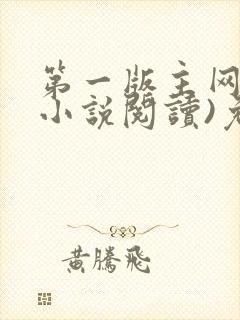 第一版主网
小说閱讀)免
黃騰飛